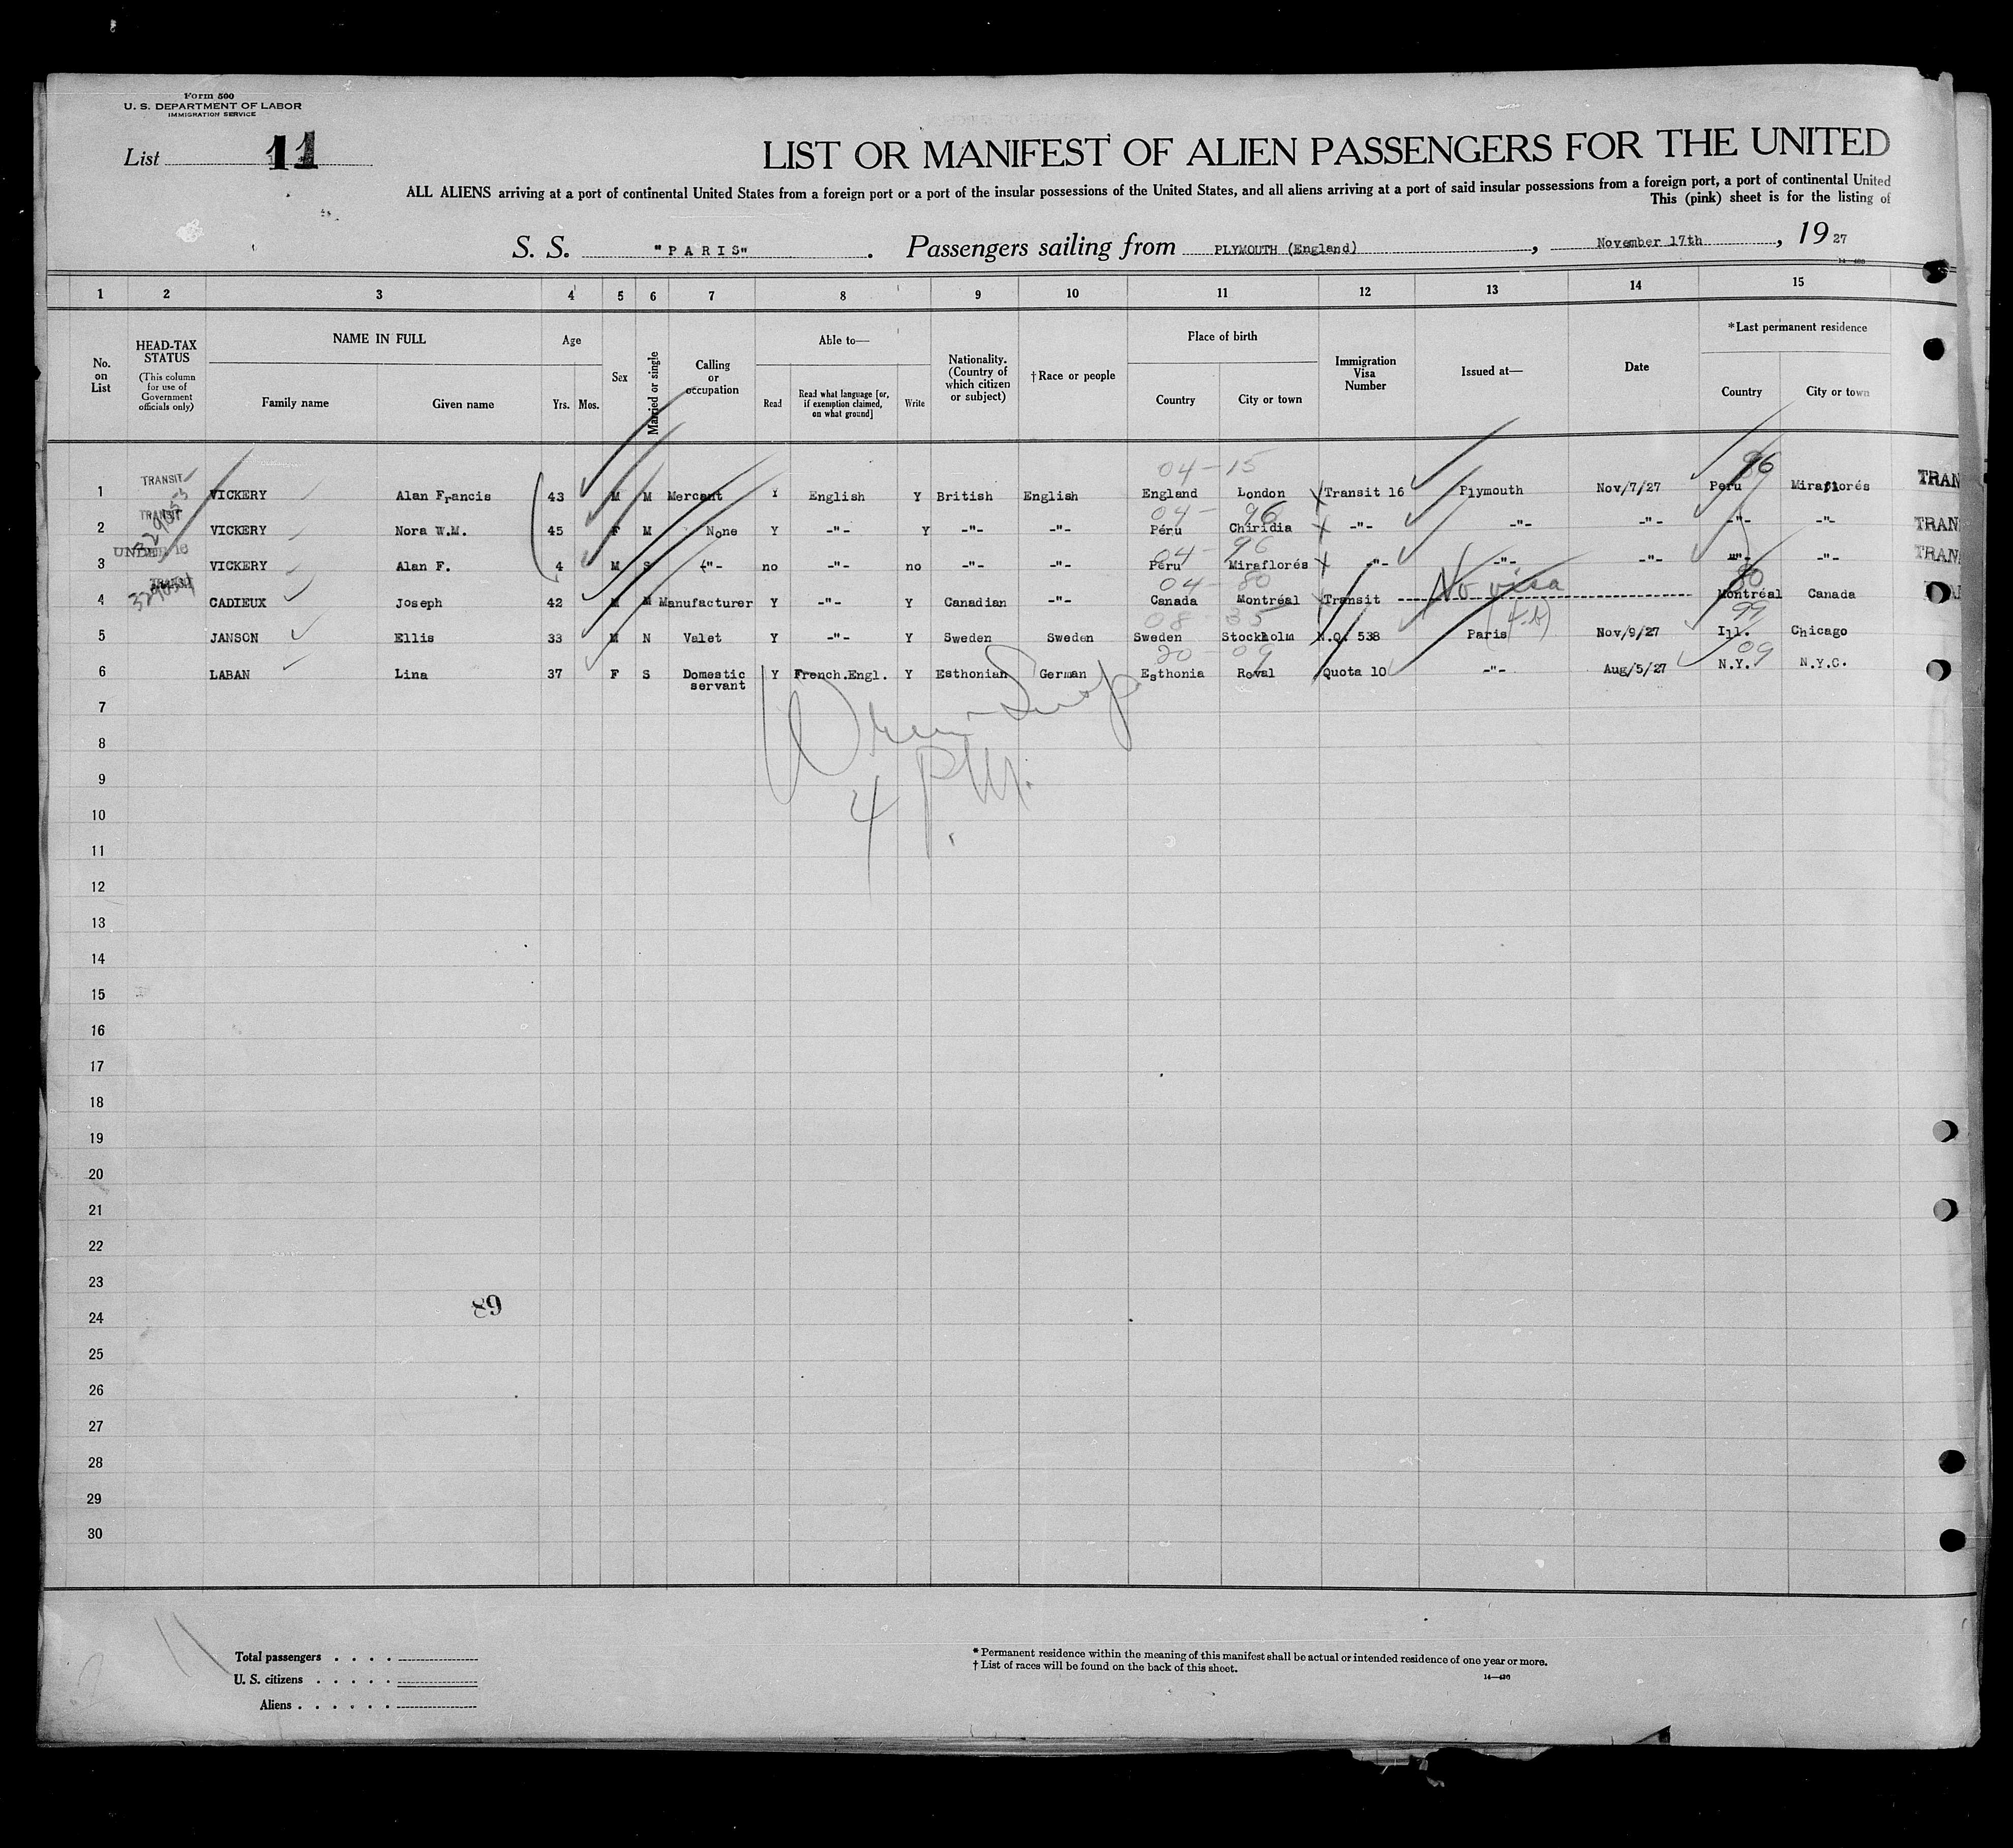 Form 500
U. S. DEPARTMENT OF LABOR
IMMIGRATION SERVICE
List 11
LIST OR MANIFEST OF ALIEN PASSENGERS FOR THE UNITED
ALL ALIENS arriving at a port of continental United States from a foreign port or a port of the insular possessions of the United States, and all aliens arriving at a port of said insular possessions from a foreign port, a port of continental United
This (pink) sheet is for the listing of
S. S. "PARIS". Passengers sailing from PLYMOUTH (England), November 17th, 1927
1 2 3 4 5 6 7 8 9 10 11 12 13 14 15
No. on List
HEAD-TAX STATUS (This column for use of Government officials only)
NAME IN FULL
Family name Given name
Age
Yrs. Mos.
Sex
Married or single
Calling or occupation
Able to—
Read
Read what language [or, if exemption claimed, on what ground]
Write
Nationality. (Country of which citizen or subject)
†Race or people
Place of birth
Country City or town
Immigration Visa Number
Issued at—
Date
*Last permanent residence
Country City or town
04-15 96
1 TRANSIT VICKERY Alan Francis 43 M M Mercant Y English Y British English England London Transit 16 Plymouth Nov/7/27 Peru Miraflorés TRAN
04-96
2 TRANSIT VICKERY Nora W.M. 45 F M None Y -"- Y -"- -"- Péru Chiridia -"- -"- -"- -"- -"- TRAN
04-96
3 UNDER 16 VICKERY Alan F. 4 M S -"- no -"- no -"- -"- Péru Miraflorés -"- -"- -"- -"- -"- TRAN
04-80 No visa 80
4 TRANSIT CADIEUX Joseph 42 M M Manufacturer Y -"- Y Canadian -"- Canada Montréal Transit Montréal Canada
08-35 (4-b) 99
5 JANSON Ellis 33 M N Valet Y -"- Y Sweden Sweden Sweden Stockholm N.Q. 538 Paris Nov/9/27 Ill. Chicago
20-09 09
6 LABAN Lina 37 F S Domestic servant Y French.Engl. Y Esthonian German Esthonia Reval Quota 10 -"- Aug/5/27 N.Y. N.Y.C.
7
8
4 P.M.
9
10
11
12
13
14
15
16
17
18
19
20
21
22
23
89
24
25
26
27
28
29
30
11
Total passengers
U. S. citizens
Aliens
* Permanent residence within the meaning of this manifest shall be actual or intended residence of one year or more.
† List of races will be found on the back of this sheet.
14—436